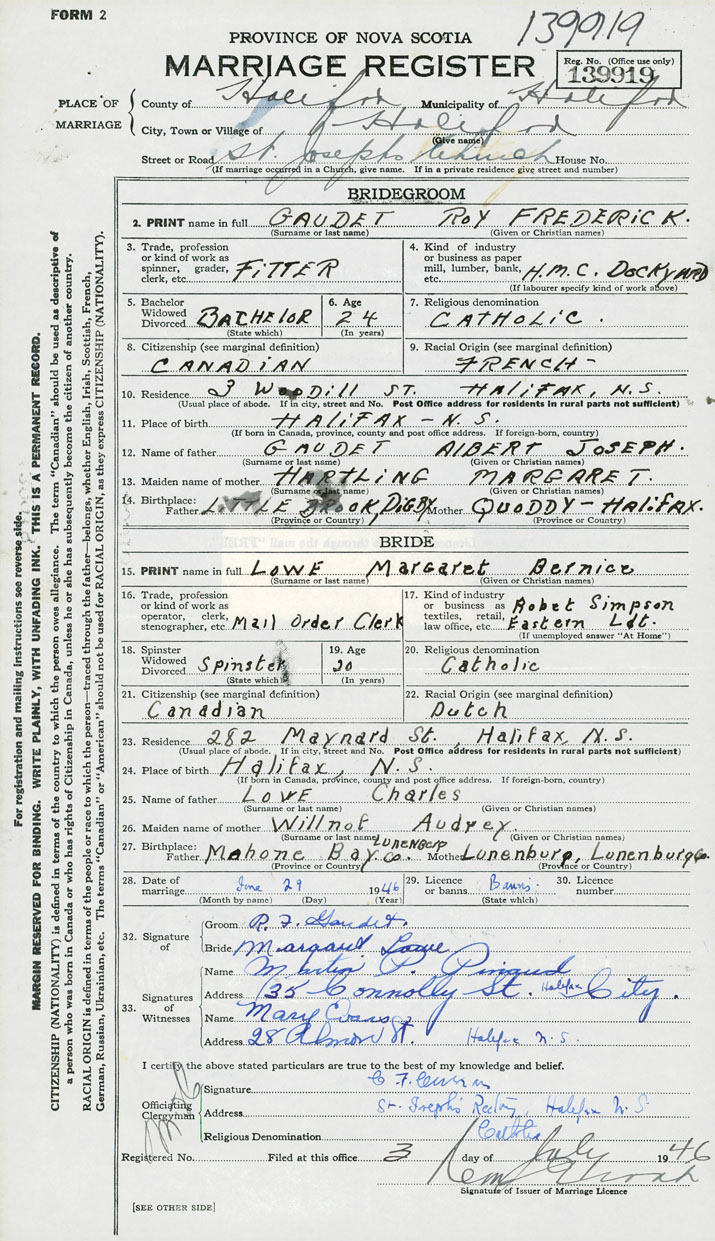 FORM 2
139919
PROVINCE OF NOVA SCOTIA
MARRIAGE REGISTER
Reg. No. (Office use only)
139919
PLACE OF MARRIAGE
County of Halifax Municipality of Halifax
City, Town or Village of Halifax
(Give name)
Street or Road St. Josephs Church House No.
(If marriage occurred in a Church, give name. If in a private residence give street and number)
BRIDEGROOM
2. PRINT name in full GAUDET ROY FREDERICK.
(Surname or last name) (Given or Christian names)
3. Trade, profession or kind of work as spinner, grader, clerk, etc. FITTER
4. Kind of industry or business as paper mill, lumber, bank, etc. H.M.C. DOCKYARD
(If labourer specify kind of work above)
5. Bachelor Widowed Divorced BACHELOR
(State which)
6. Age 24
(In years)
7. Religious denomination
CATHOLIC.
8. Citizenship (see marginal definition)
CANADIAN
9. Racial Origin (see marginal definition)
FRENCH-
10. Residence 3 Woodill ST. HALIFAX, N.S.
(Usual place of abode. If in city, street and No. Post Office address for residents in rural parts not sufficient)
11. Place of birth HALIFAX - N.S.
(If born in Canada, province, county and post office address. If foreign-born, country)
12. Name of father GAUDET ALBERT JOSEPH.
(Surname or last name) (Given or Christian names)
13. Maiden name of mother HARTLING MARGARET.
(Surname or last name) (Given or Christian names)
14. Birthplace:
Father LITTLE BROOK, DIGBY Mother QUODDY - HALIFAX.
(Province or Country) (Province or Country)
BRIDE
15. PRINT name in full LOWE Margaret Bernice
(Surname or last name) (Given or Christian names)
16. Trade, profession or kind of work as operator, clerk, stenographer, etc. Mail Order Clerk
17. Kind of industry or business as textiles, retail, law office, etc. Robet Simpson Eastern Ldt.
(If unemployed answer "At Home")
18. Spinster Widowed Divorced Spinster
(State which)
19. Age 20
(In years)
20. Religious denomination
Catholic
21. Citizenship (see marginal definition)
Canadian
22. Racial Origin (see marginal definition)
Dutch
23. Residence 282 Maynard St., Halifax, N.S.
(Usual place of abode. If in city, street and No. Post Office address for residents in rural parts not sufficient)
24. Place of birth Halifax, N.S.
(If born in Canada, province, county and post office address. If foreign-born, country)
25. Name of father LOWE Charles
(Surname or last name) (Given or Christian names)
26. Maiden name of mother Willnot Audrey.
(Surname or last name) (Given or Christian names)
27. Birthplace:
Father Mahone Bay, Lunenburg Co. Mother Lunenburg, Lunenburg Co.
(Province or Country) (Province or Country)
28. Date of marriage June 29 1946
(Month by name) (Day) (Year)
29. Licence or banns Banns.
(State which)
30. Licence number
32. Signature of
Groom R. F. Gaudet.
Bride Margaret Lowe
33. Signatures of Witnesses
Name Martin P. Pinaud
Address 135 Connolly St. Halifax City.
Name Mary Evans
Address 28 Almon St. Halifax N.S.
I certify the above stated particulars are true to the best of my knowledge and belief.
Officiating Clergyman
Signature C F Curran
Address St. Joseph's Rectory, Halifax N S
Religious Denomination Catholic
Registered No. Filed at this office 3 day of July 1946
Signature of Issuer of Marriage Licence
[SEE OTHER SIDE]
For registration and mailing instructions see reverse side.
MARGIN RESERVED FOR BINDING. WRITE PLAINLY, WITH UNFADING INK. THIS IS A PERMANENT RECORD.
CITIZENSHIP (NATIONALITY) is defined in terms of the country to which the person owes allegiance. The term "Canadian" should be used as descriptive of
a person who was born in Canada or who has rights of Citizenship in Canada, unless he or she has subsequently become the citizen of another country.
RACIAL ORIGIN is defined in terms of the people or race to which the person—traced through the father—belongs, whether English, Irish, Scottish, French,
German, Russian, Ukrainian, etc. The terms "Canadian" or "American" should not be used for RACIAL ORIGIN, as they express CITIZENSHIP (NATIONALITY).